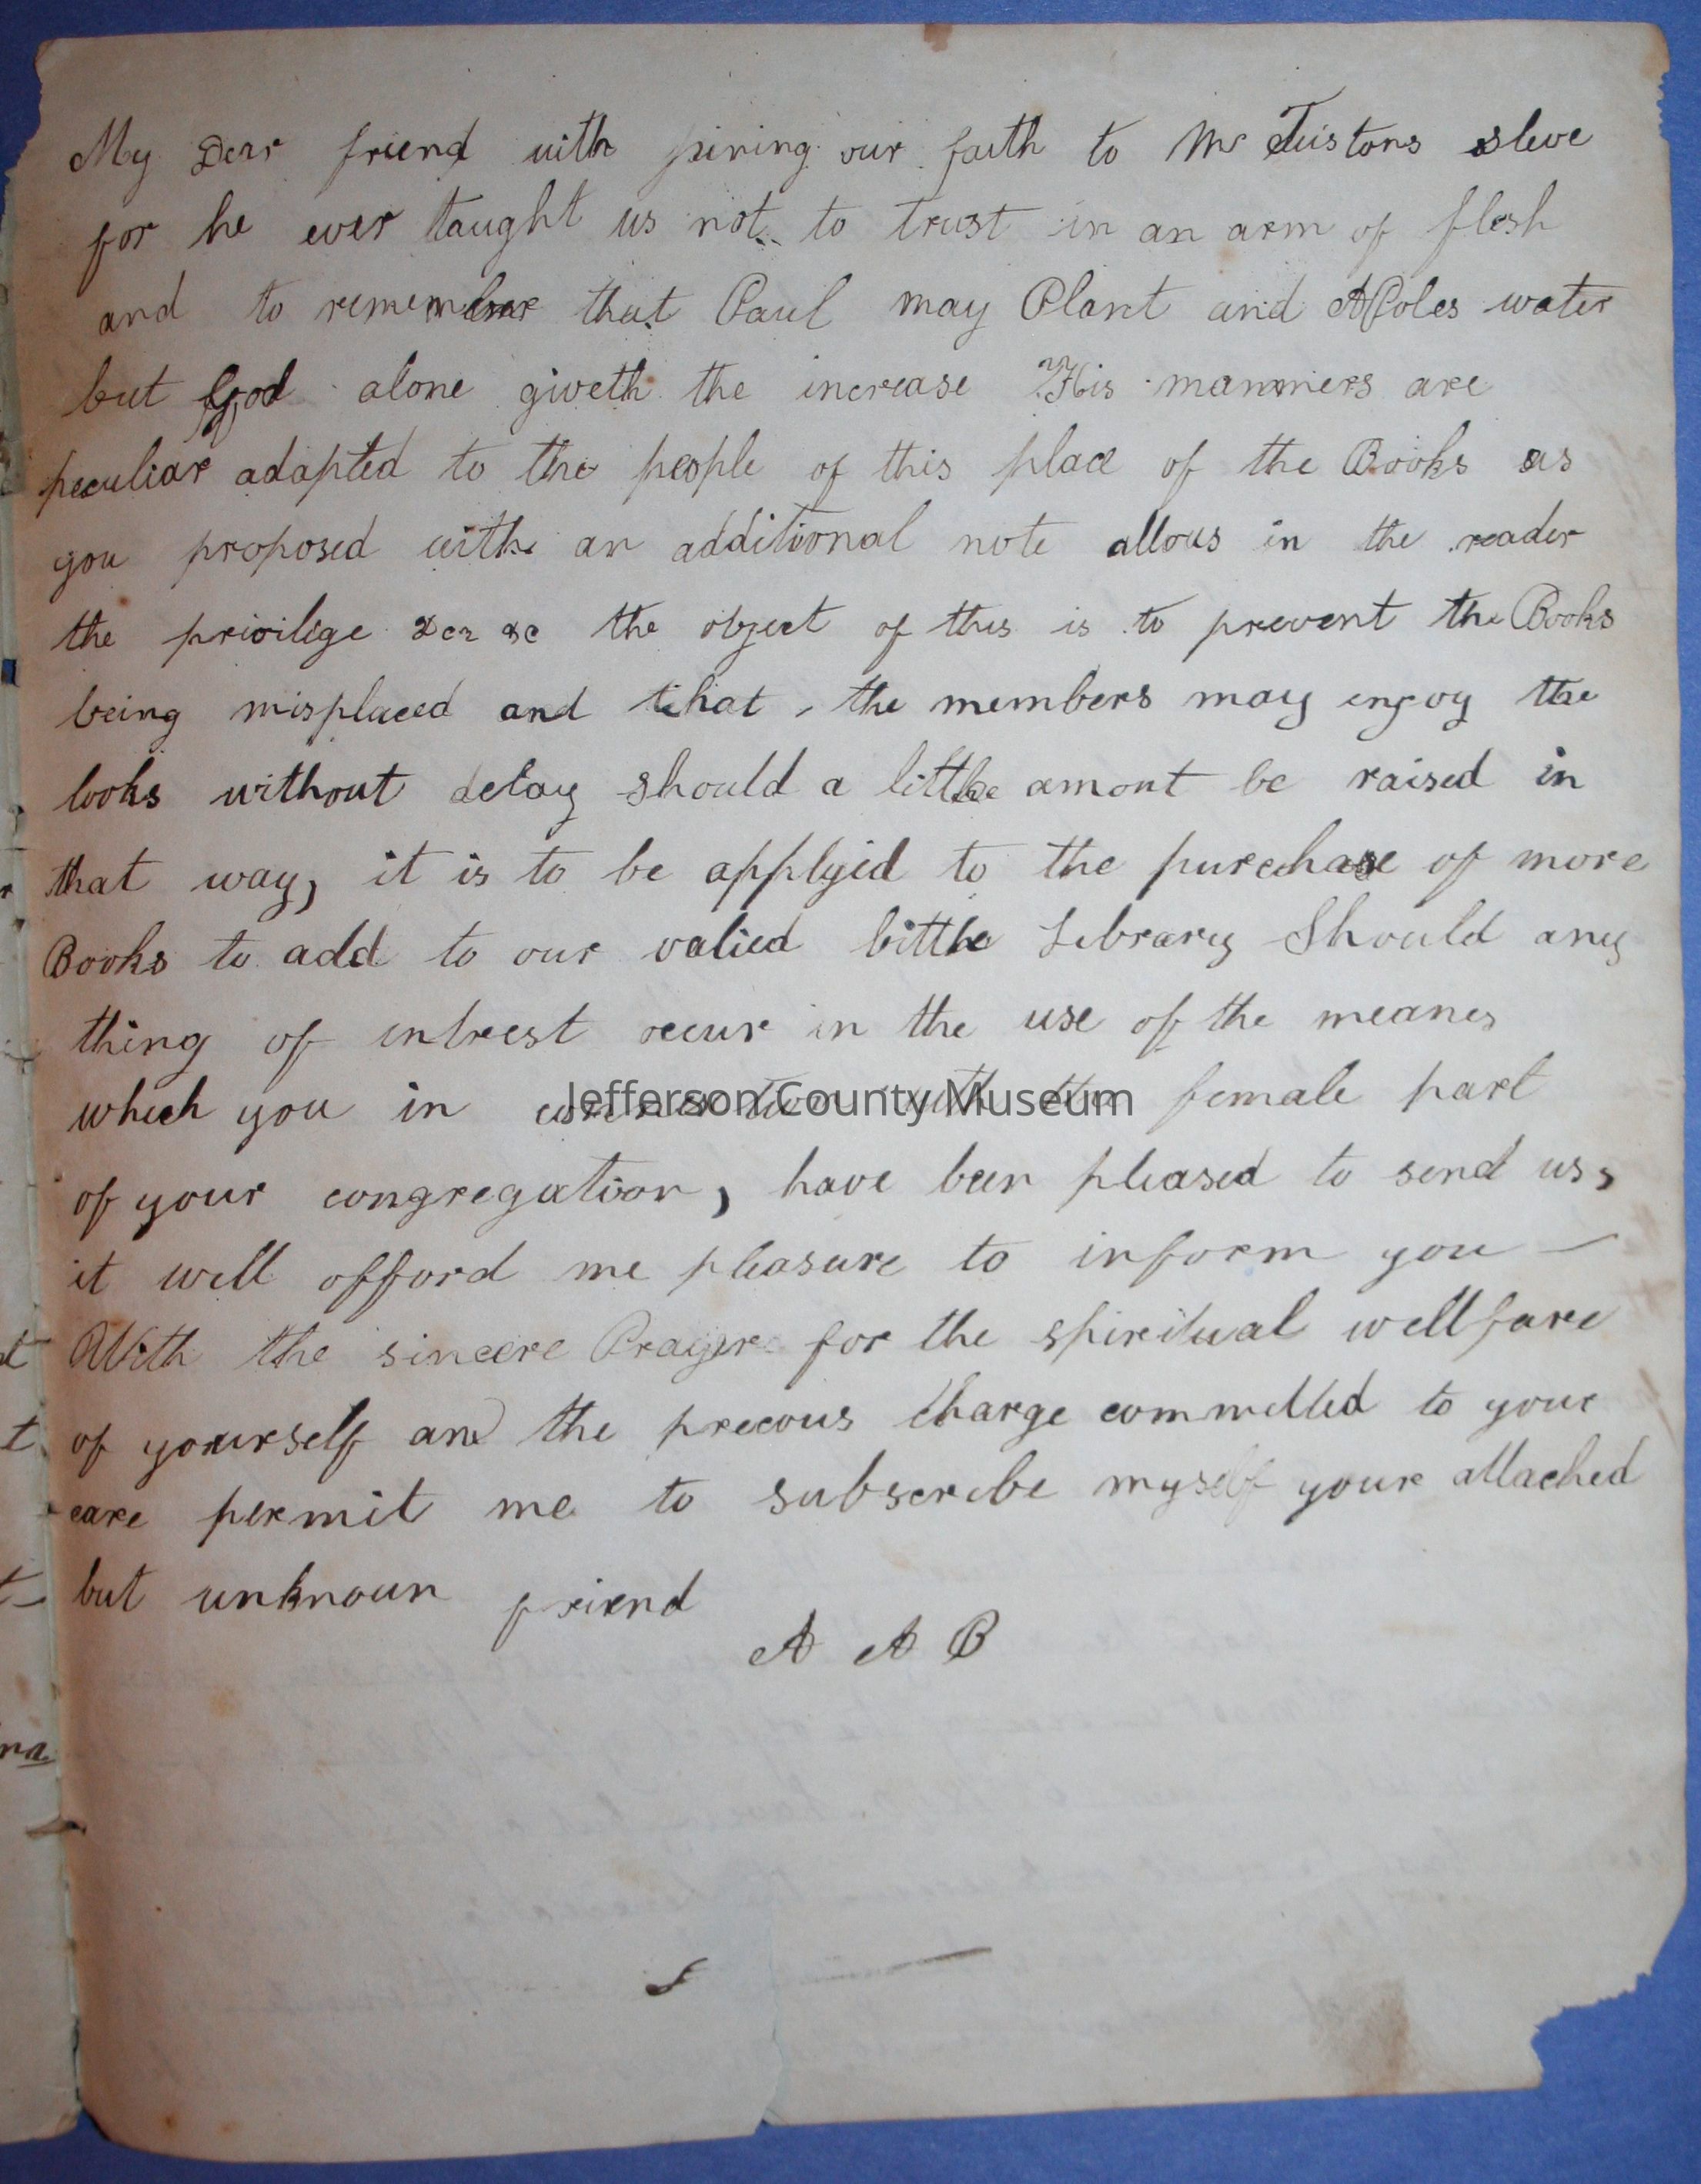 My Dear friend with pining our faith to Mr Tustons sleve
for he ever taught us not to trust in an arm of flesh
and to remember that Paul may Plant and APoles water
but God alone giveth the increase His manners are
peculiar adapted to the people of this place of the Books as
you proposed with an additional note allous in the reader
the privilige &c the object of this is to prevent the Books
being misplaced and that, the members may enjoy the
books without delay should a little amont be raised in
that way, it is to be applyid to the purchase of more
Books to add to our valied little Library Should any
thing of intrest occur in the use of the meanes
which you in connection with the female part
Jefferson County Museum
of your congregation, have been pleased to send us,
it will afford me pleasure to inform you —
With the sincere Prayer for the spiritual wellfare
of yourself and the precous charge committed to your
care permit me to subscribe myself your attached
but unknoun friend
A A B